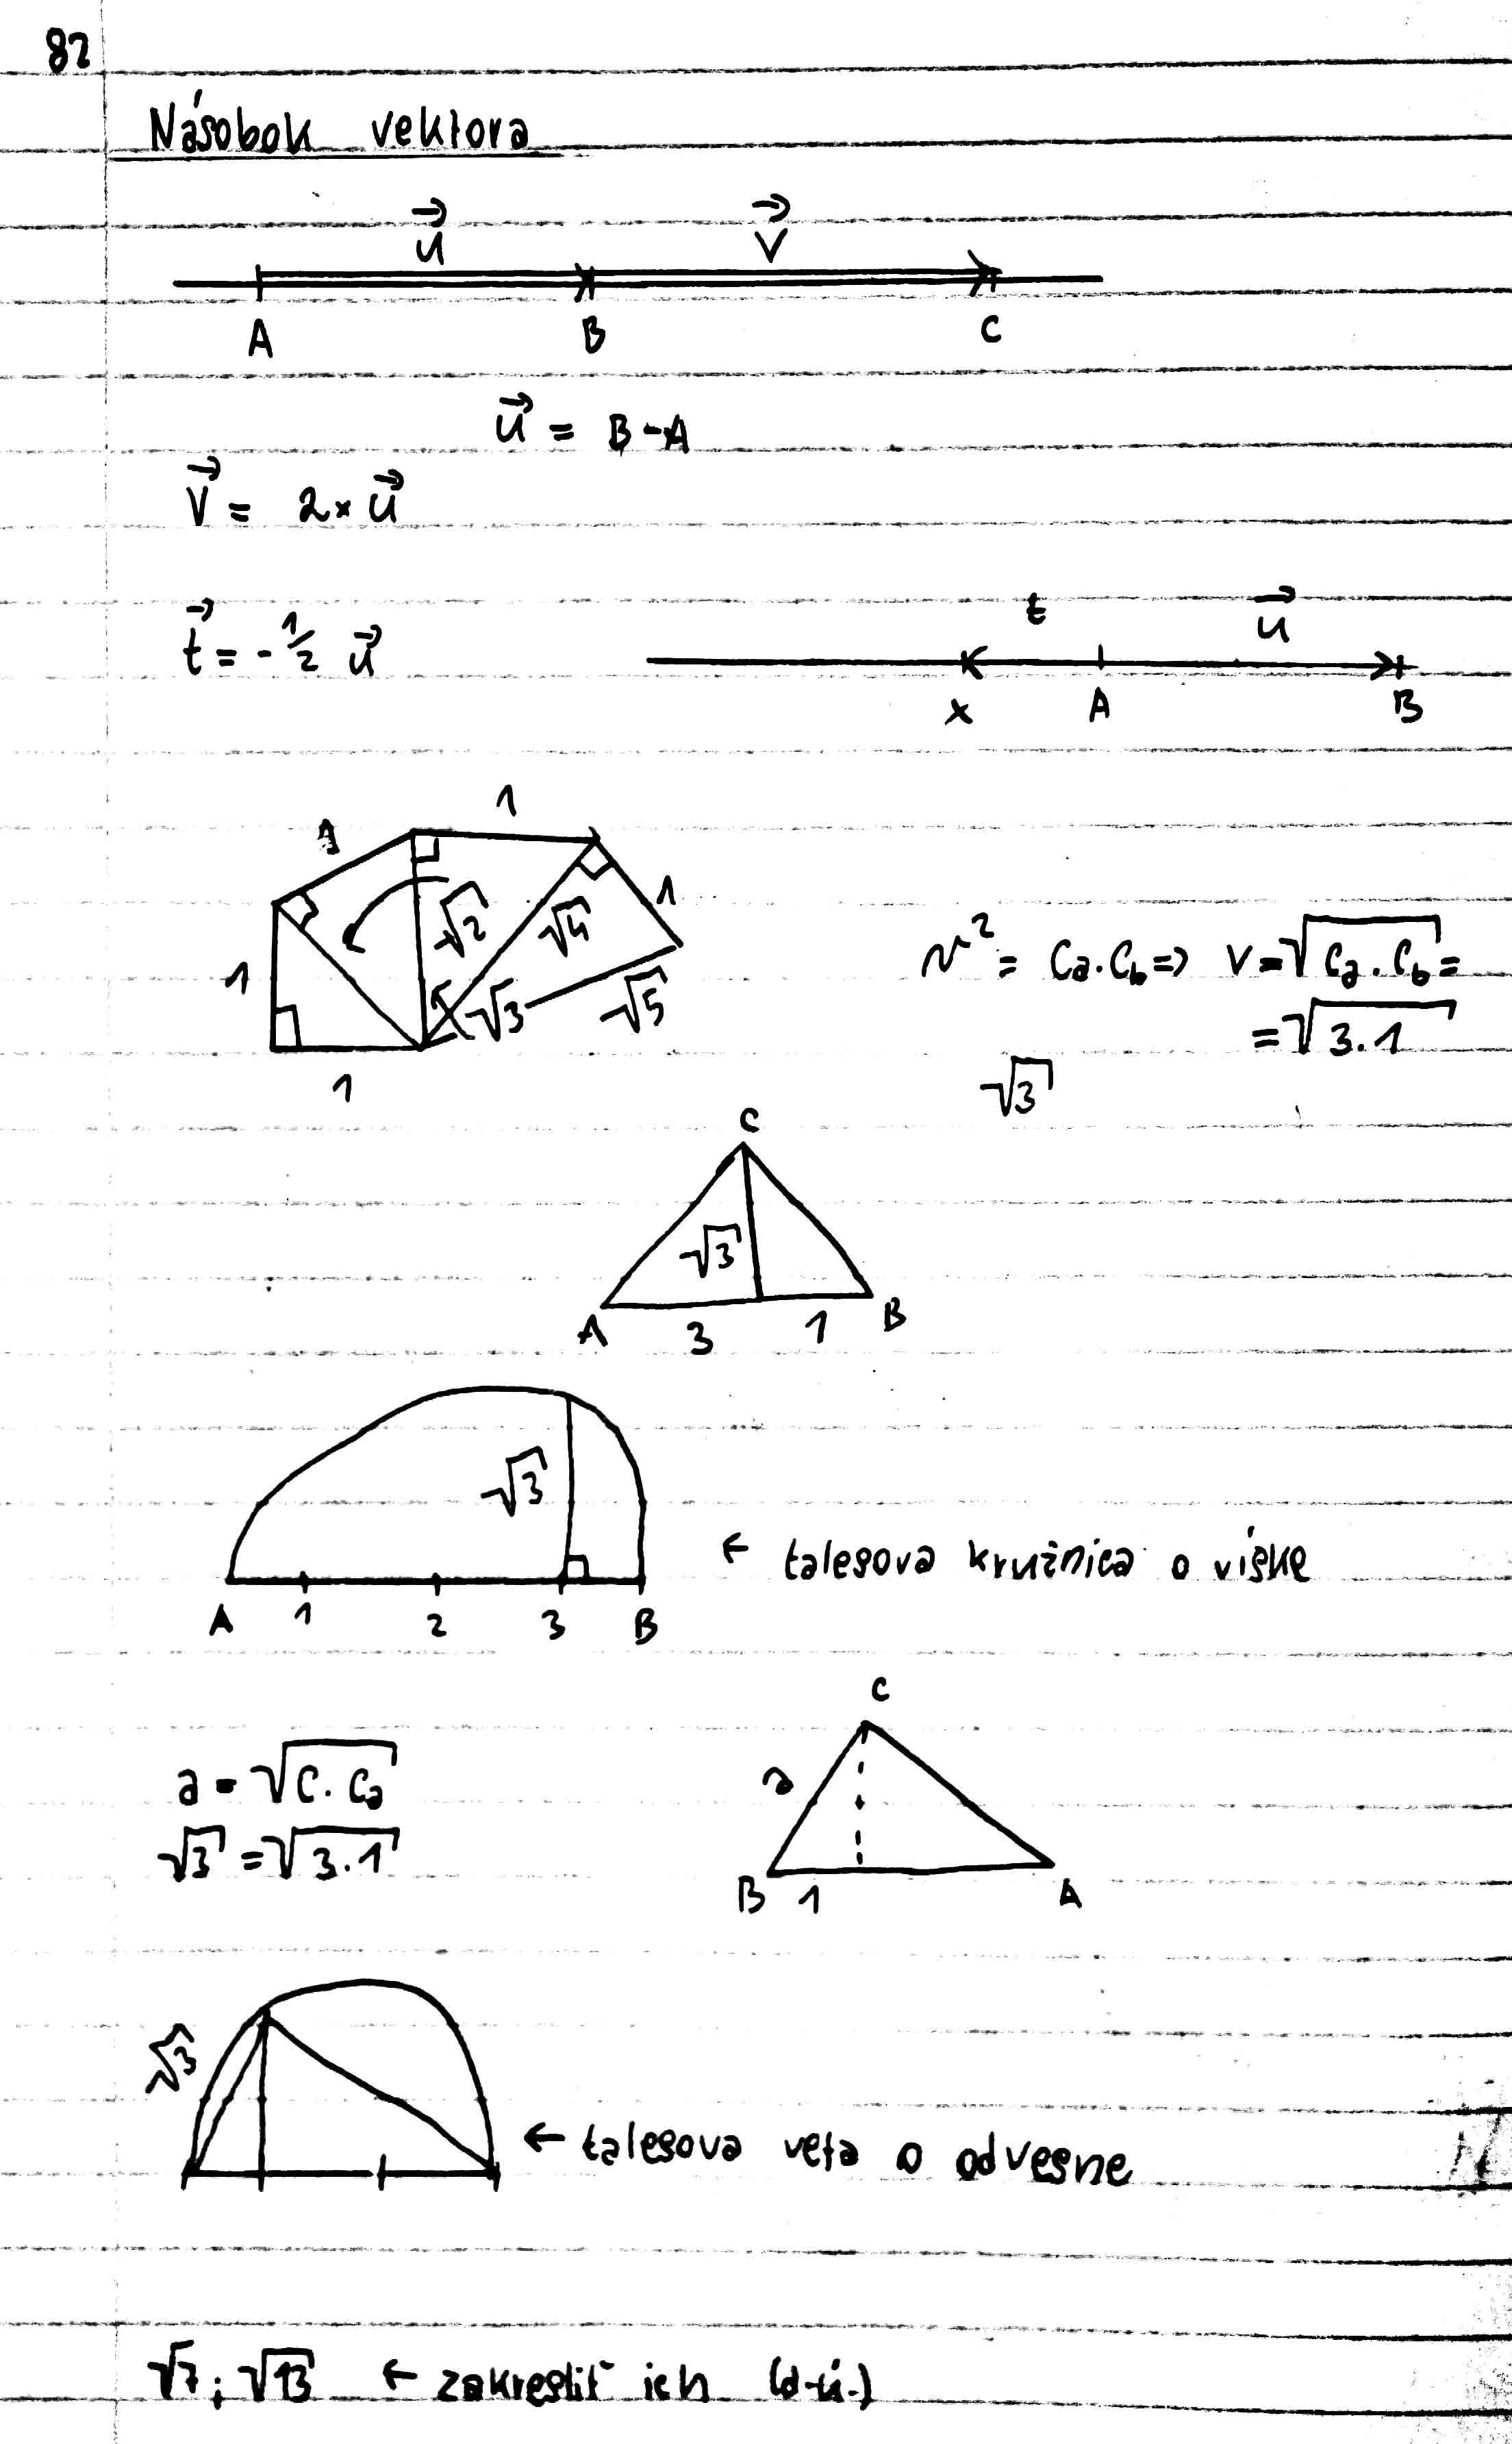 82
Násobok vektora
u⃗ v⃗
A B C
u⃗ = B-A
v⃗ = 2×u⃗
t⃗ = -1/2 u⃗
t u⃗
x A B
1
1
√2 √4 1
1
√3 √5
1
v² = ca.cb => v=√ca.cb =
=√3.1
√3
C
√3
A 3 1 B
√3
← talesova kružnica o víške
A 1 2 3 B
C
a = √c.ca
a
√3 = √3.1
B 1 A
√3
← talesova veta o odvesne
√7; √13 ← zakresliť ich (d.ú.)